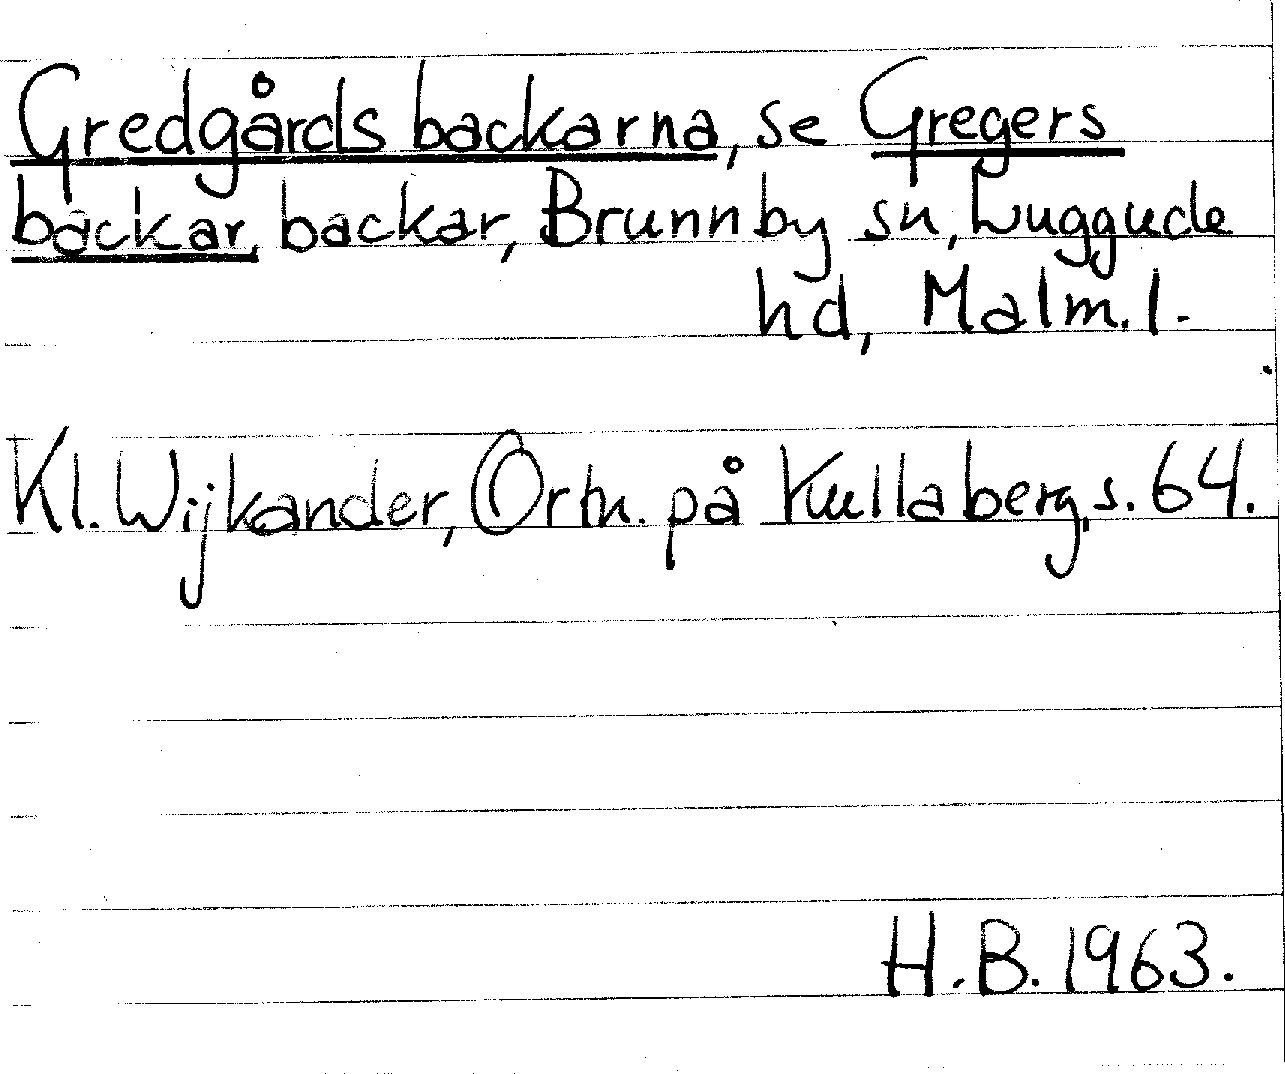 Gredgårds backarna, se Gregers
backar, backar, Brunnby sn, Luggude
hd, Malm. l.
Kl. Wijkander, Ortn. på Kullaberg, s. 64.
H. B. 1963.